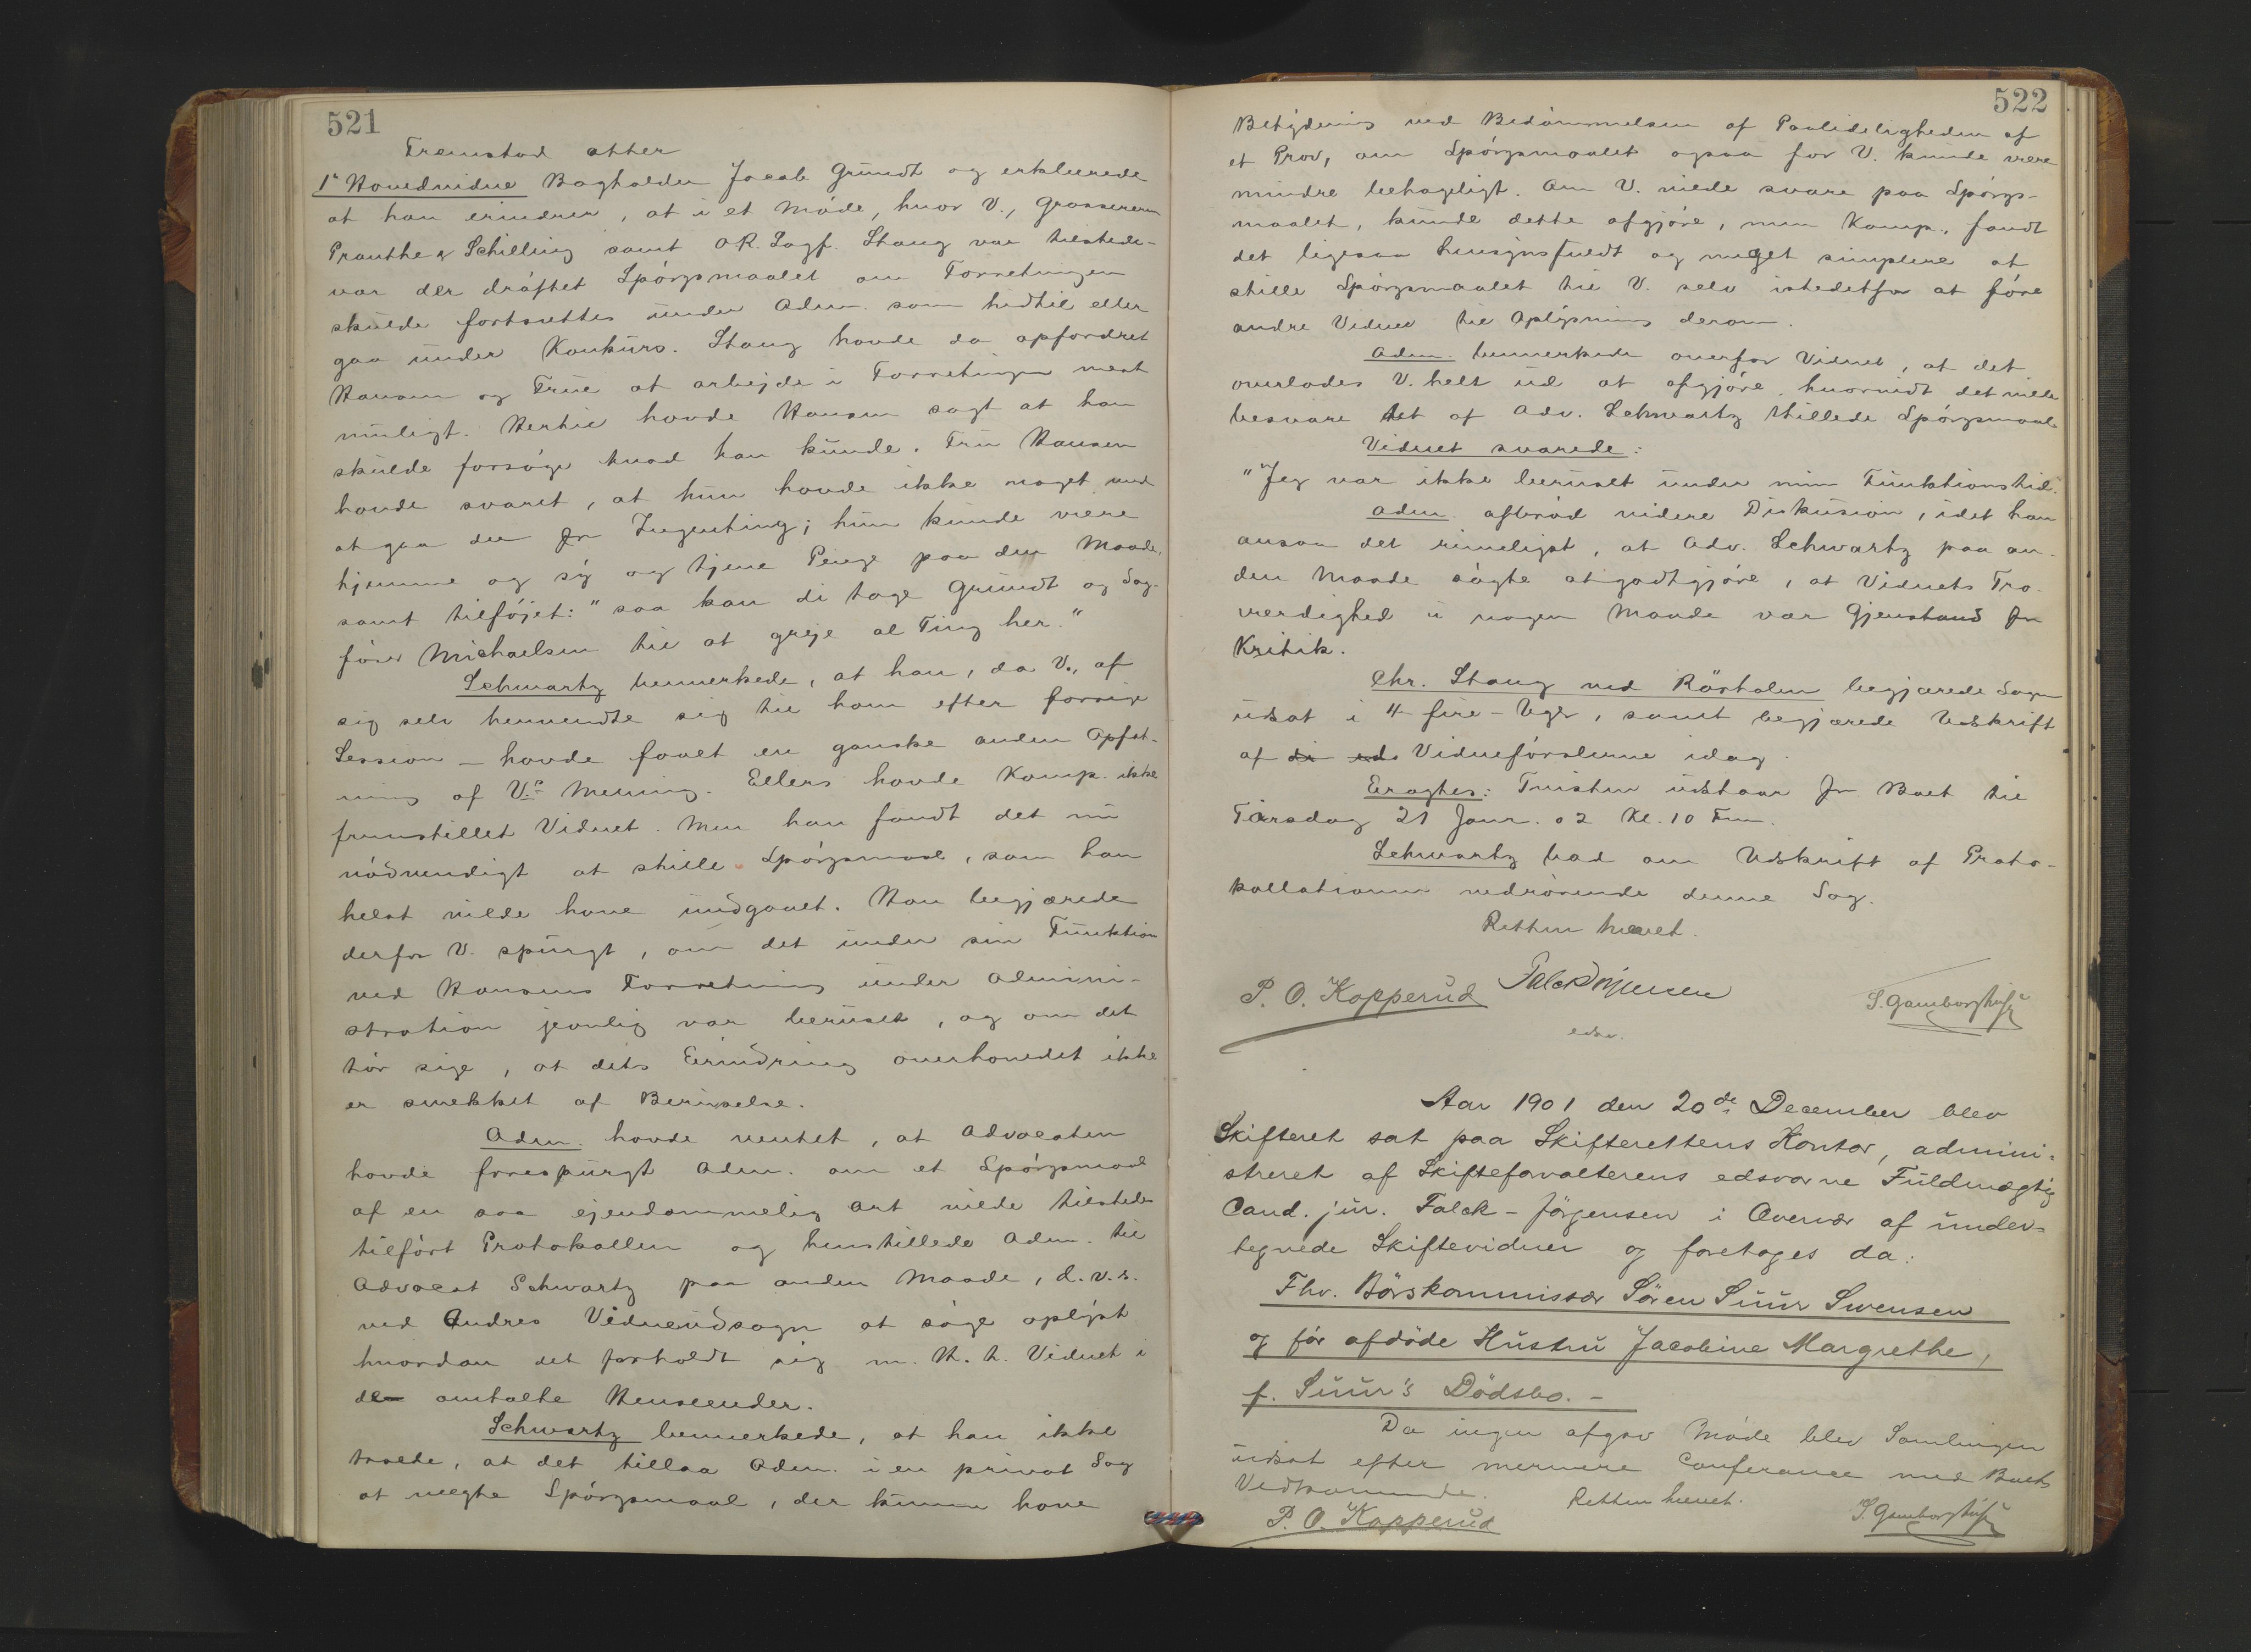 521
Fremstod atter
1ste Hovedvidne Bogholder Jacob Grundt og erklærede
at han erindrer, at i et Møde, hvor V., Grossererne
Pranthe & Schilling samt O.R. Sagf. Stang var tilstede
var der drøftet Spørgsmaalet om Forretningen
skulde fortsættes under Adm. som hidtil eller
gaa under Konkurs. Stang havde da opfordret
Hansen og Frue at arbejde i Forretningen mest
muligt. Hertil havde Hansen sagt at han
skulde forsøge hvad han kunde. Fru Hansen
havde svaret, at hun havde ikke noget ved
at gaa der for Ingenting; hun kunde være
hjemme og sy og tjene Penge paa den Maade,
samt tilføjet: "saa kan di tage Grundt og Sag-
fører Michaelsen til at greje al Ting her."
Schwartz bemerkede, at han, da V., af
sig selv henvendte sig til ham efter forrige
Session – havde faaet en ganske anden Opfat-
ning af V.s Mening. Ellers havde Komp. ikke
fremstillet Vidnet. Men han fandt det nu
nødvendigt at stille Spørgsmaal, som han
helst vilde have undgaaet. Han begjærede
derfor V. spurgt, om det under sin Funktion
ved Hansens Forretning under Admini-
stration jevnlig var beruset, og om det
tør sige, at dets Erindring overhovedet ikke
er svekket af Beruselse.
Adm. havde ventet, at Advocaten
havde forespurgt Adm. om et Spørgsmaal
af en saa ejendommelig Art vilde tilstedes
tilført Protokollen og henstillede Adm. til
Advocat Schwartz paa anden Maade, d.v.s.
ved Andres Vidneudsagn at søge oplyst
hvordan det forholdt sig m. H. t. Vidnet i
de omtalte Henseender.
Schwartz bemerkede, at han ikke
troede, at det tillaa Adm. i en privat Sag
at negte Spørgsmaal, der kunne have
522
Betydning ved Bedømmelsen af Paalideligheden af
et Prov, om Spørgsmaalet ogsaa for V. kunde være
mindre behageligt. Om V. vilde svare paa Spørgs-
maalet, kunde dette afgjøre, men Komp. fandt
det ligesaa hensynsfuldt og meget simplere at
stille Spørgsmaalet til V. selv istedetfor at føre
andre Vidner til Oplysning derom.
Adm. bemerkede overfor Vidnet, at det
overlodes V. helt ud at afgjøre, hvorvidt det vilde
besvare det af Adv. Schwartz stillede Spørgsmaal
Vidnet svarede:
"Jeg var ikke beruset under min Funktionstid."
Adm. afbrød videre Diskusion, idet han
ansaa det rimeligst, at Adv. Schwartz paa an-
den Maade søgte at godtgjøre, at Vidnets Tro-
værdighed i nogen Maade var Gjenstand for
Kritik.
Chr. Stang ved Rörholm begjærede Sagen
udsat i 4 fire – Uger, samt begjærede Udskrift
af Vidneførslerne idag.
Eragtes: Tvisten udstaar for Boet til
Tirsdag 21 Janr. 02 Kl. 10 Fm.
Schwartz bad om Udskrift af Proto-
kollationen vedrørende denne Sag.
Retten hævet.
P. O. Kopperud Falck Jørgensen S. Gamborg
edsv.
Aar 1901 den 20de December blev
Skifteret sat paa Skifterettens Kontor, admini-
streret af Skifteforvalterens edsvorne Fuldmægtig
Cand. jur. Falck-Jørgensen i Overvær af under-
tegnede Skiftevidner og foretoges da:
Fhv. Börskommissær Sören Suur Svensen
og før afdøde Hustru Jacobine Margrethe,
f. Suur's Dödsbo. –
Da ingen afgav Møde blev Samlingen
udsat efter nermere Conferance med Boets
Vedkommende. Retten hævet.
P. O. Kopperud S. Gamborg